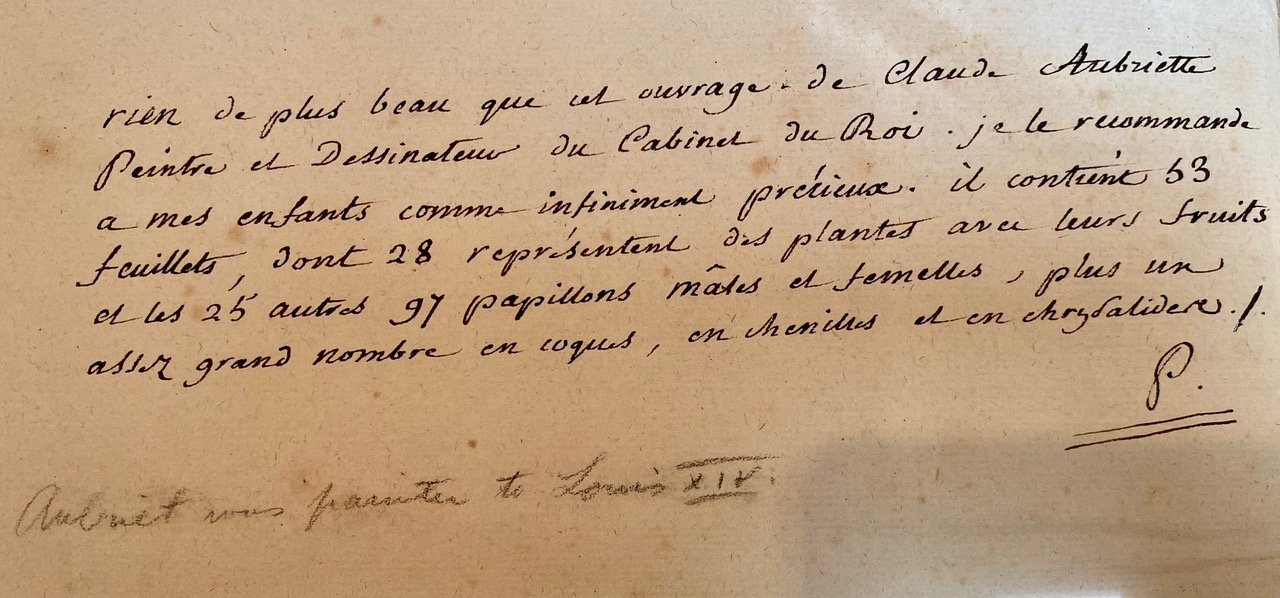 rien de plus beau que cet ouvrage. de Claude Aubriette
Peintre et Dessinateur du Cabinet du Roi. je le recommande
a mes enfants comme infiniment prétieux. il contient 53
feuillets, dont 28 représentent des plantes avec leurs fruits
et les 25 autres 97 papillons mâles et femelles, plus un
assez grand nombre en coques, en chenilles et en chrysalides /.
P.
Aubriet was painter to Louis XIV.